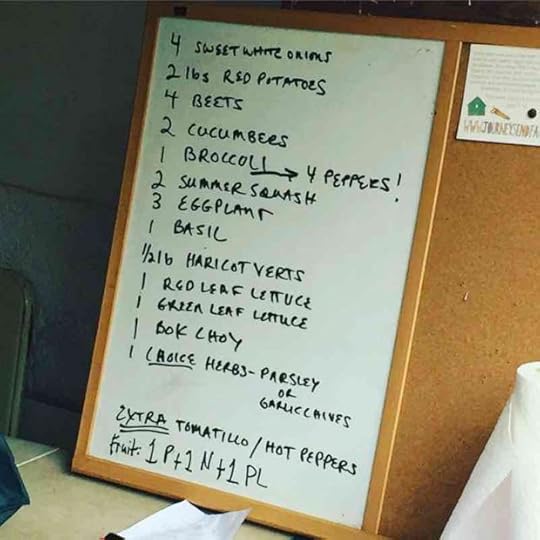 4 SWEET WHITE ONIONS
2 lbs RED POTATOES
4 BEETS
2 CUCUMBERS
1 BROCCOLI → 4 PEPPERS!
2 SUMMER SQUASH
3 EGGPLANT
1 BASIL
1/2 lb HARICOT VERTS
1 RED LEAF LETTUCE
1 GREEN LEAF LETTUCE
1 BOK CHOY
1 CHOICE HERBS - PARSLEY
OR
GARLIC CHIVES
EXTRA TOMATILLO / HOT PEPPERS
Fruit: 1 P + 1 N + 1 PL
WWW.JOURNEYSENDFA